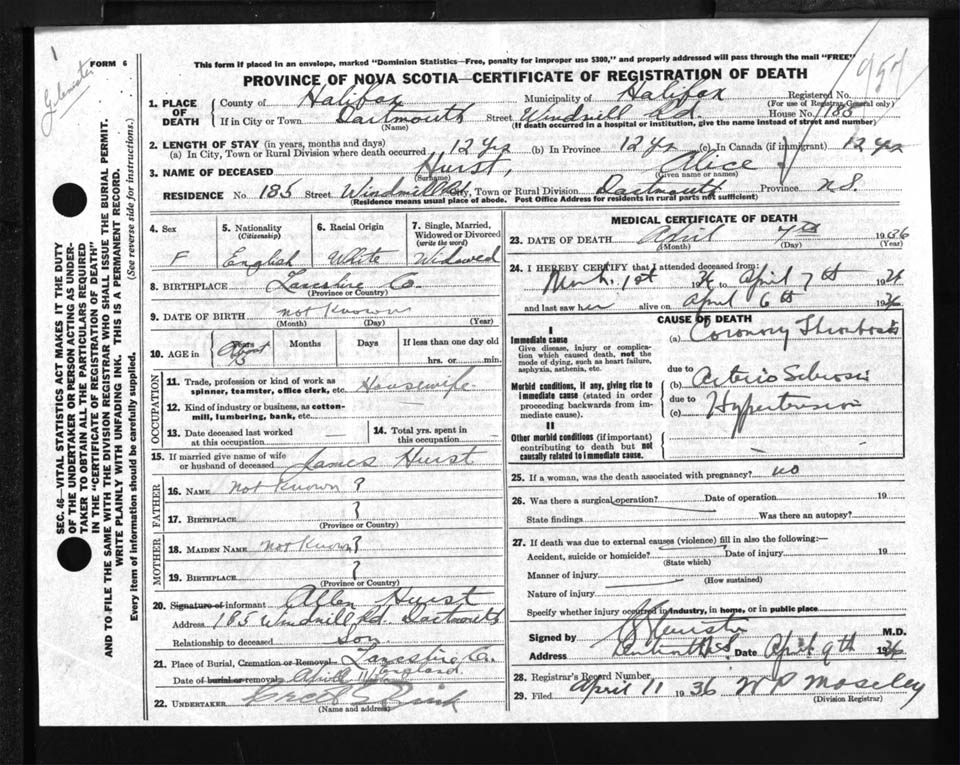 FORM 6
This form if placed in an envelope, marked "Dominion Statistics—Free, penalty for improper use $300," and properly addressed will pass through the mail "FREE"
PROVINCE OF NOVA SCOTIA—CERTIFICATE OF REGISTRATION OF DEATH
1. PLACE OF DEATH County of Halifax Municipality of Halifax Registered No.
(For use of Registrar General only)
If in City or Town Dartmouth Street Windmill Rd. House No. 185
(Name) (If death occurred in a hospital or institution, give the name instead of street and number)
2. LENGTH OF STAY (in years, months and days)
(a) In City, Town or Rural Division where death occurred 12 yrs (b) In Province 12 yrs (c) In Canada (if immigrant) 12 yrs
3. NAME OF DECEASED Hurst, Alice
(Surname) (Given name or names)
RESIDENCE No. 185 Street Windmill Rd City, Town or Rural Division Dartmouth Province N.S.
(Residence means usual place of abode. Post Office Address for residents in rural parts not sufficient)
4. Sex F
5. Nationality (Citizenship) English
6. Racial Origin White
7. Single, Married, Widowed or Divorced (write the word) Widowed
8. BIRTHPLACE Lancshire Co.
(Province or Country)
9. DATE OF BIRTH not known
(Month) (Day) (Year)
10. AGE in Years Months Days If less than one day old
About hrs. or min.
OCCUPATION
11. Trade, profession or kind of work as spinner, teamster, office clerk, etc. Housewife
12. Kind of industry or business, as cotton-mill, lumbering, bank, etc.
13. Date deceased last worked at this occupation —
14. Total yrs. spent in this occupation —
15. If married give name of wife or husband of deceased James Hurst
FATHER
16. NAME not known ?
17. BIRTHPLACE ?
(Province or Country)
MOTHER
18. MAIDEN NAME not known ?
19. BIRTHPLACE ?
(Province or Country)
20. Signature of informant Allen Hurst
Address 185 Windmill Rd. Dartmouth
Relationship to deceased Son
21. Place of Burial, Cremation or Removal England
Date of burial or removal April 11
22. UNDERTAKER
(Name and address)
MEDICAL CERTIFICATE OF DEATH
23. DATE OF DEATH April 7th 1936
(Month) (Day) (Year)
24. I HEREBY CERTIFY that I attended deceased from:
March 1st 1936 to April 7th 1936
and last saw her alive on April 6th 1936
CAUSE OF DEATH
I
Immediate cause
Give disease, injury or complication which caused death, not the mode of dying, such as heart failure, asphyxia, asthenia, etc.
(a) Coronary Thrombosis
due to
Morbid conditions, if any, giving rise to immediate cause (stated in order proceeding backwards from immediate cause).
(b) Arterio Sclerosis
due to
(c) Hypertension
II
Other morbid conditions (if important) contributing to death but not causally related to immediate cause.
25. If a woman, was the death associated with pregnancy? no
26. Was there a surgical operation? Date of operation 19
State findings Was there an autopsy?
27. If death was due to external causes (violence) fill in also the following:—
Accident, suicide or homicide? Date of injury 19
(State which)
Manner of injury
(How sustained)
Nature of injury
Specify whether injury occurred in industry, in home, or in public place
Signed by M.D.
Address Dartmouth N.S. Date April 9th 1936
28. Registrar's Record Number
29. Filed April 11 1936 W P Moseley
(Division Registrar)
SEC. 46—VITAL STATISTICS ACT MAKES IT THE DUTY
OF THE UNDERTAKER OR PERSON ACTING AS UNDER-
TAKER TO OBTAIN ALL THE PARTICULARS REQUIRED
IN THE "CERTIFICATE OF REGISTRATION OF DEATH"
AND TO FILE THE SAME WITH THE DIVISION REGISTRAR WHO SHALL ISSUE THE BURIAL PERMIT.
WRITE PLAINLY WITH UNFADING INK. THIS IS A PERMANENT RECORD.
Every item of information should be carefully supplied. (See reverse side for instructions.)